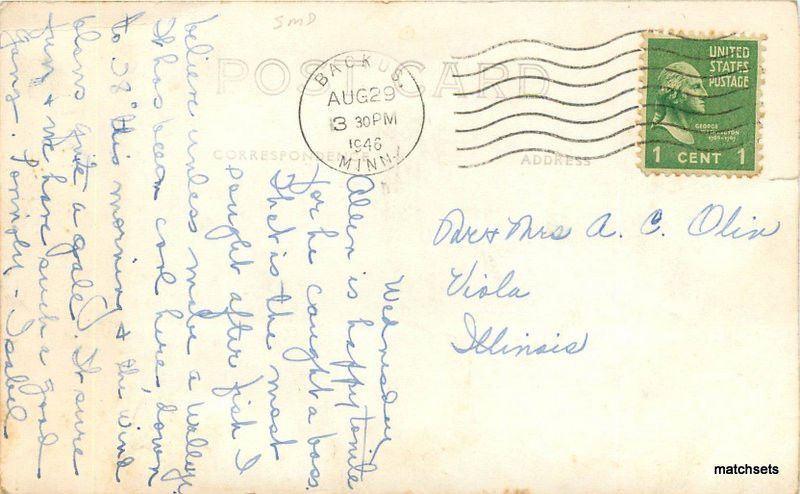 SMD
POST CARD
BACKUS
AUG 29
3 30 PM
1946
MINN.
UNITED
STATES
POSTAGE
GEORGE
WASHINGTON
1 CENT 1
CORRESPONDENCE
ADDRESS
Mr & Mrs A. C. Olin
Viola
Illinois
Wednesday
Allen is happy tonite
for he caught a bass.
That is the most
sought after fish I
believe unless maybe a walleye.
It has been cool here, down
to 38° this morning & the wind
blows quite a gale. It sure
fun & we have such a good
gang. Lovingly - Isabel
matchsets